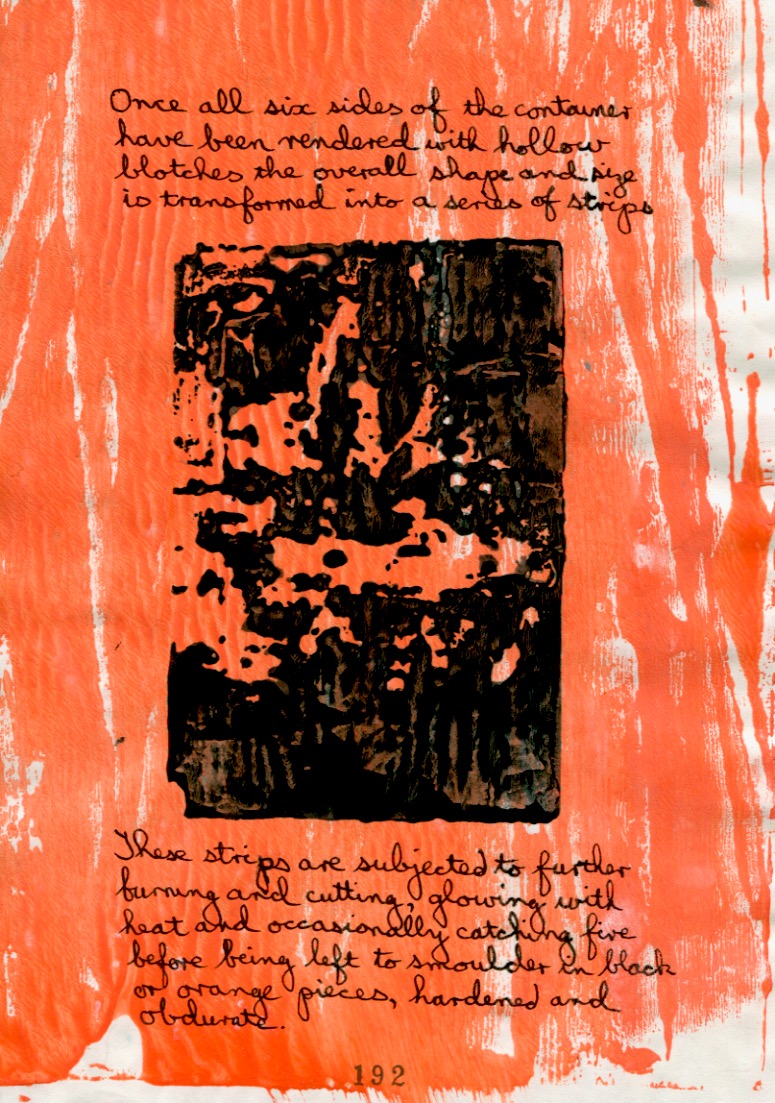 Once all six sides of the container
have been rendered with hollow
blotches the overall shape and size
is transformed into a series of strips
These strips are subjected to further
burning and cutting, glowing with
heat and occasionally catching fire
before being left to smoulder in black
or orange pieces, hardened and
obdurate.
192